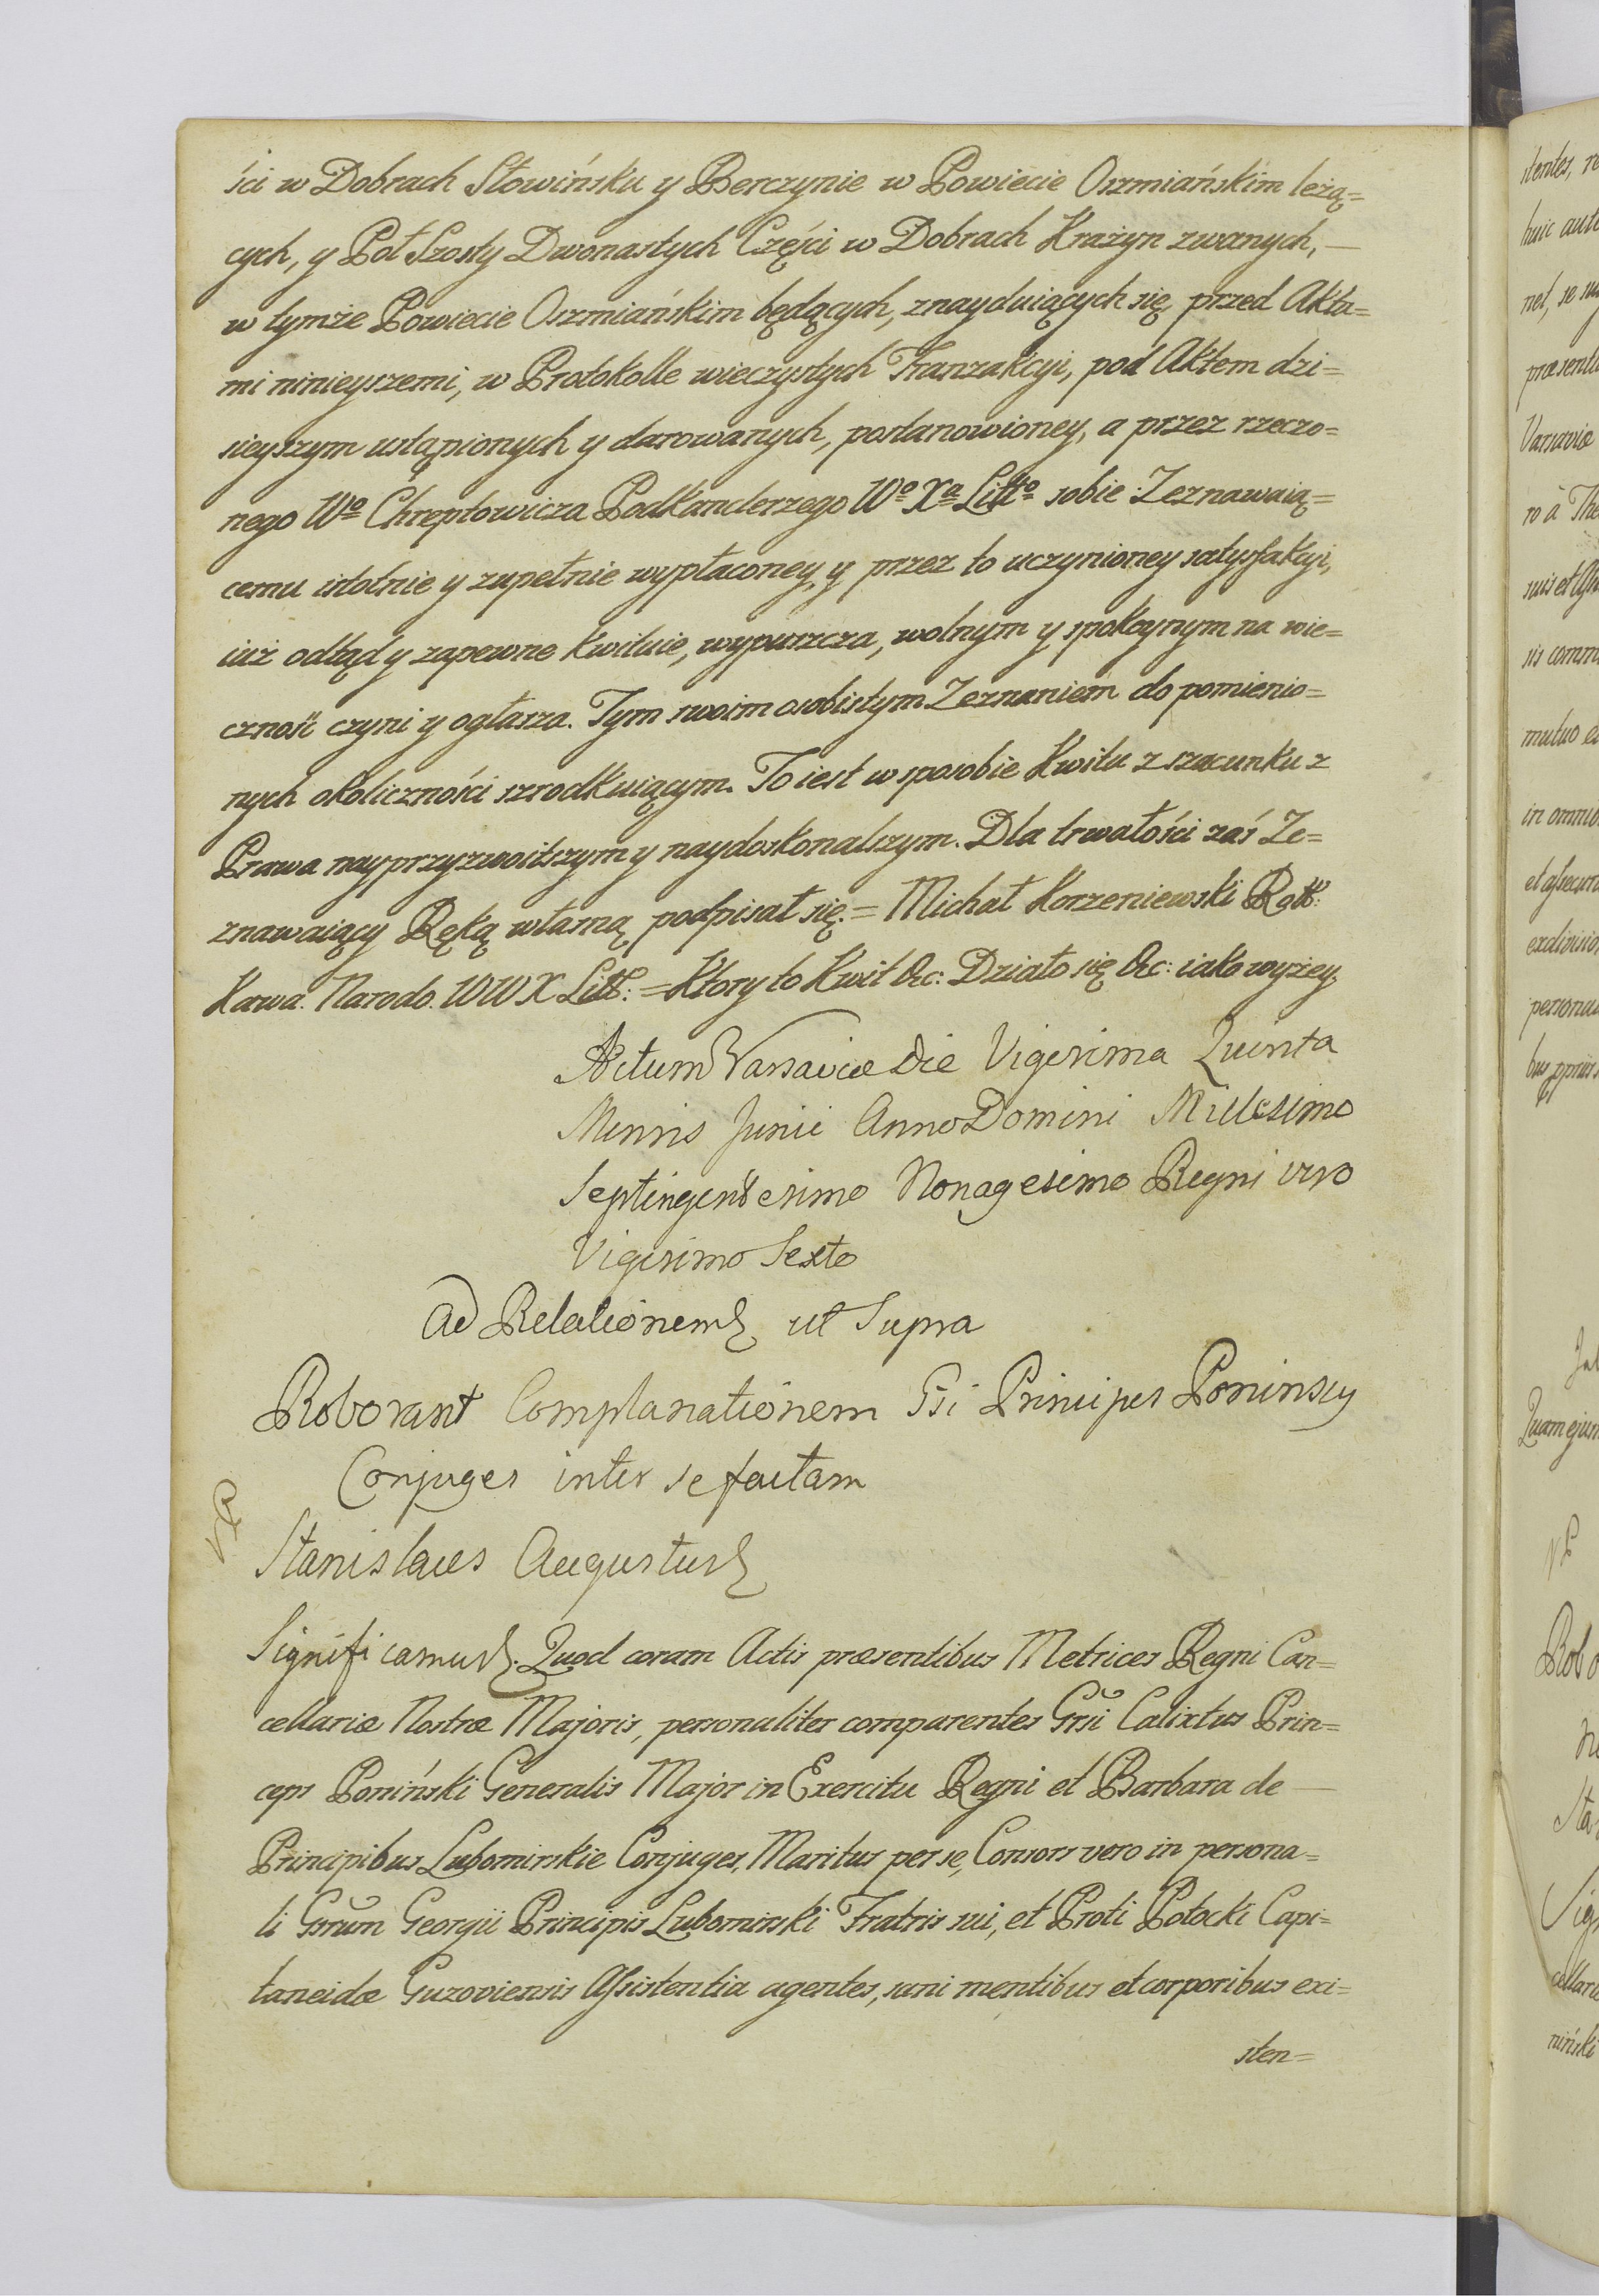 ści w Dobrach Słowińsku y Berczynie w Powiecie Oszmiańskim leżą=
cych, y Poł Szosty Dwonastych Części w Dobrach Krażyn zwanych, —
w tymże Powiecie Oszmiańskim będących, znayduiących się, przed Akta=
mi ninieyszemi, w Protokolle wieczystych Tranzakcyi, pod Aktem dzi=
sieyszym ustąpionych y darowanych, postanowioney, a przez rzeczo=
nego Wo Chreptowicza Podkanclerzego Wo Xa Litto sobie Zeznawaią=
cemu istotnie y zupełnie wypłaconey, y przez to uczynioney satysfakcyi,
iuż odtąd y zapewne kwituie, wypuszcza, wolnym y spokoynym na wie=
czność czyni y ogłasza. Tym swoim osobistym Zeznaniem do pomienio=
nych okoliczności szrodkuiącym. To iest w sposobie Kwitu z szacunku z
Prawa nayprzyzwoitszym y naydoskonalszym. Dla trwałości zaś Ze=
znawaiący Ręką własną podpisał się. = Michał Korzeniewski Rott:
Kawa. Narodo. WWXLitt: = Ktory to Kwit &c: Działo się &c: iako wyżey.
Actum Varsaviæ Die Vigesima Quinta
Mensis Junii Anno Domini Millesimo
Septingentesimo Nonagesimo Regni vero
Vigesimo Sexto
Ad Relationem ut Supra
Roborant Complanationem Gsi Principes Poninscy
Conjuges inter se factam
Stanislaus Augustus
Significamus. Quod coram Actis præsentibus Metrices Regni Can=
cellariæ Nostræ Majoris, personaliter comparentes Grsi Calixtus Prin=
ceps Poniński Generalis Major in Exercitu Regni et Barbara de —
Principibus Lubomirskie Conjuges, Maritus per se, Consors vero in persona=
li Gsrum Georgii Principis Lubomirski Fratris sui, et Proti Potocki Capi=
taneidæ Guzoviensis Assistentia agentes, sani mentibus et corporibus exi=
sten=